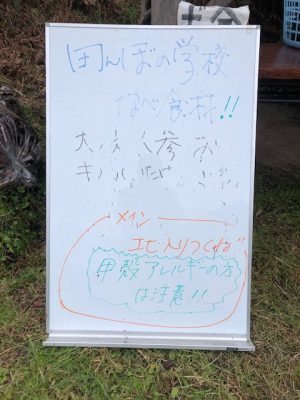 田んぼの学校
なべ食材!!
大根 人参
キノコ
メイン
エビ入りつくね
甲殻アレルギーの方
は注意!!